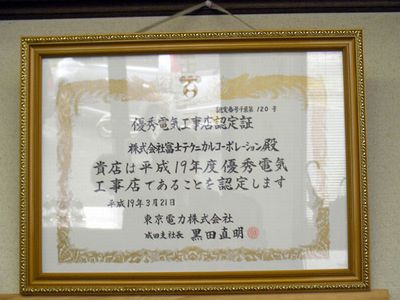 認定番号千葉第 120 号
優秀電気工事店認定証
株式会社富士テクニカルコーポレーション殿
貴店は平成19年度優秀電気
工事店であることを認定します
平成19年3月21日
東京電力株式会社
成田支社長 黒田直明